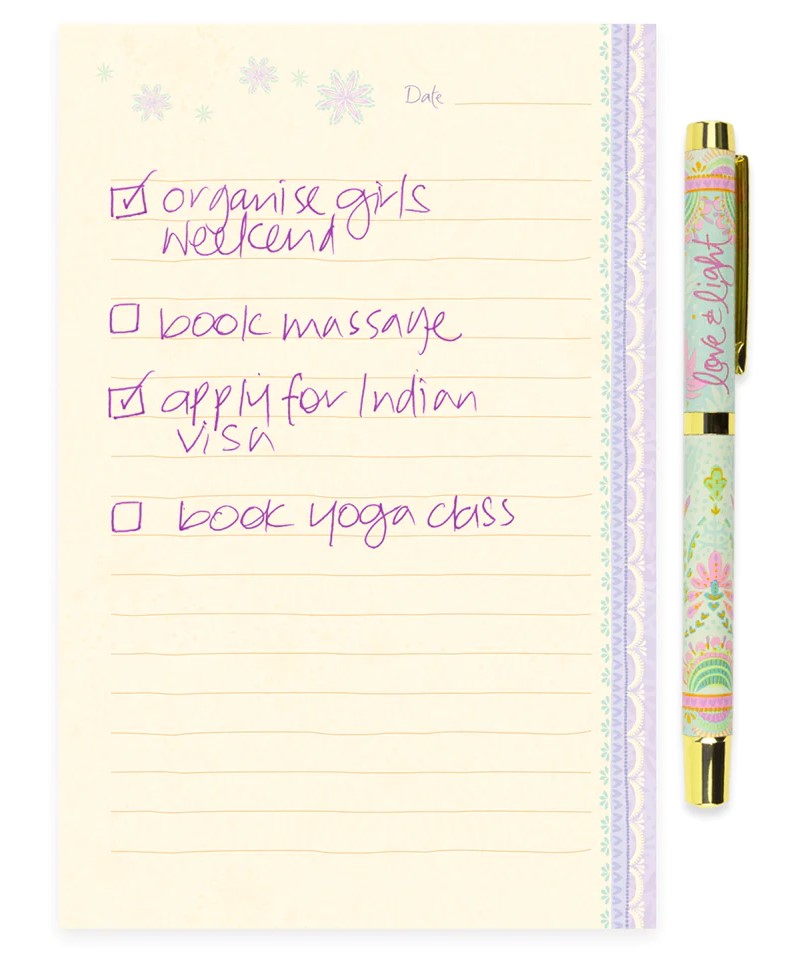 Date
☑ organise girls
weekend
☐ book massage
☑ apply for Indian
visa
☐ book yoga class
love & light